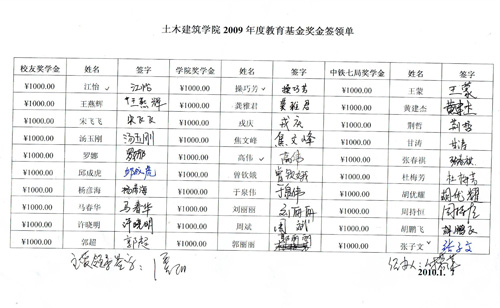 土木建筑学院 2009 年度教育基金奖金签领单
校友奖学金 姓名 签字 学院奖学金 姓名 签字 中铁七局奖学金 姓名 签字
¥1000.00 江怡 江怡 ¥1000.00 操巧芳 操巧芳 ¥1000.00 王蒙 王蒙
¥1000.00 王燕辉 王燕辉 ¥1000.00 龚雅君 龚雅君 ¥1000.00 黄建杰
¥1000.00 宋飞飞 宋飞飞 ¥1000.00 戎庆 戎庆 ¥1000.00 荆哲 荆哲
¥1000.00 汤玉刚 汤玉刚 ¥1000.00 焦文峰 焦文峰 ¥1000.00 甘涛 甘涛
¥1000.00 罗娜 罗娜 ¥1000.00 高伟 高伟 ¥1000.00 张春祺
¥1000.00 邱成虎 邱成虎 ¥1000.00 曾钦娥 曾钦娥 ¥1000.00 杜梅芳 杜梅芳
¥1000.00 杨彦海 杨彦海 ¥1000.00 于泉伟 于泉伟 ¥1000.00 胡优耀 胡优耀
¥1000.00 马春华 马春华 ¥1000.00 刘丽丽 刘丽丽 ¥1000.00 周持恒 周持恒
¥1000.00 许晓明 许晓明 ¥1000.00 周斌 周斌 ¥1000.00 胡鹏飞 胡鹏飞
¥1000.00 郭超 郭超 ¥1000.00 郭丽丽 郭丽丽 ¥1000.00 张子文 张子文
主管领导签字：
经办人：
2010.1. 7